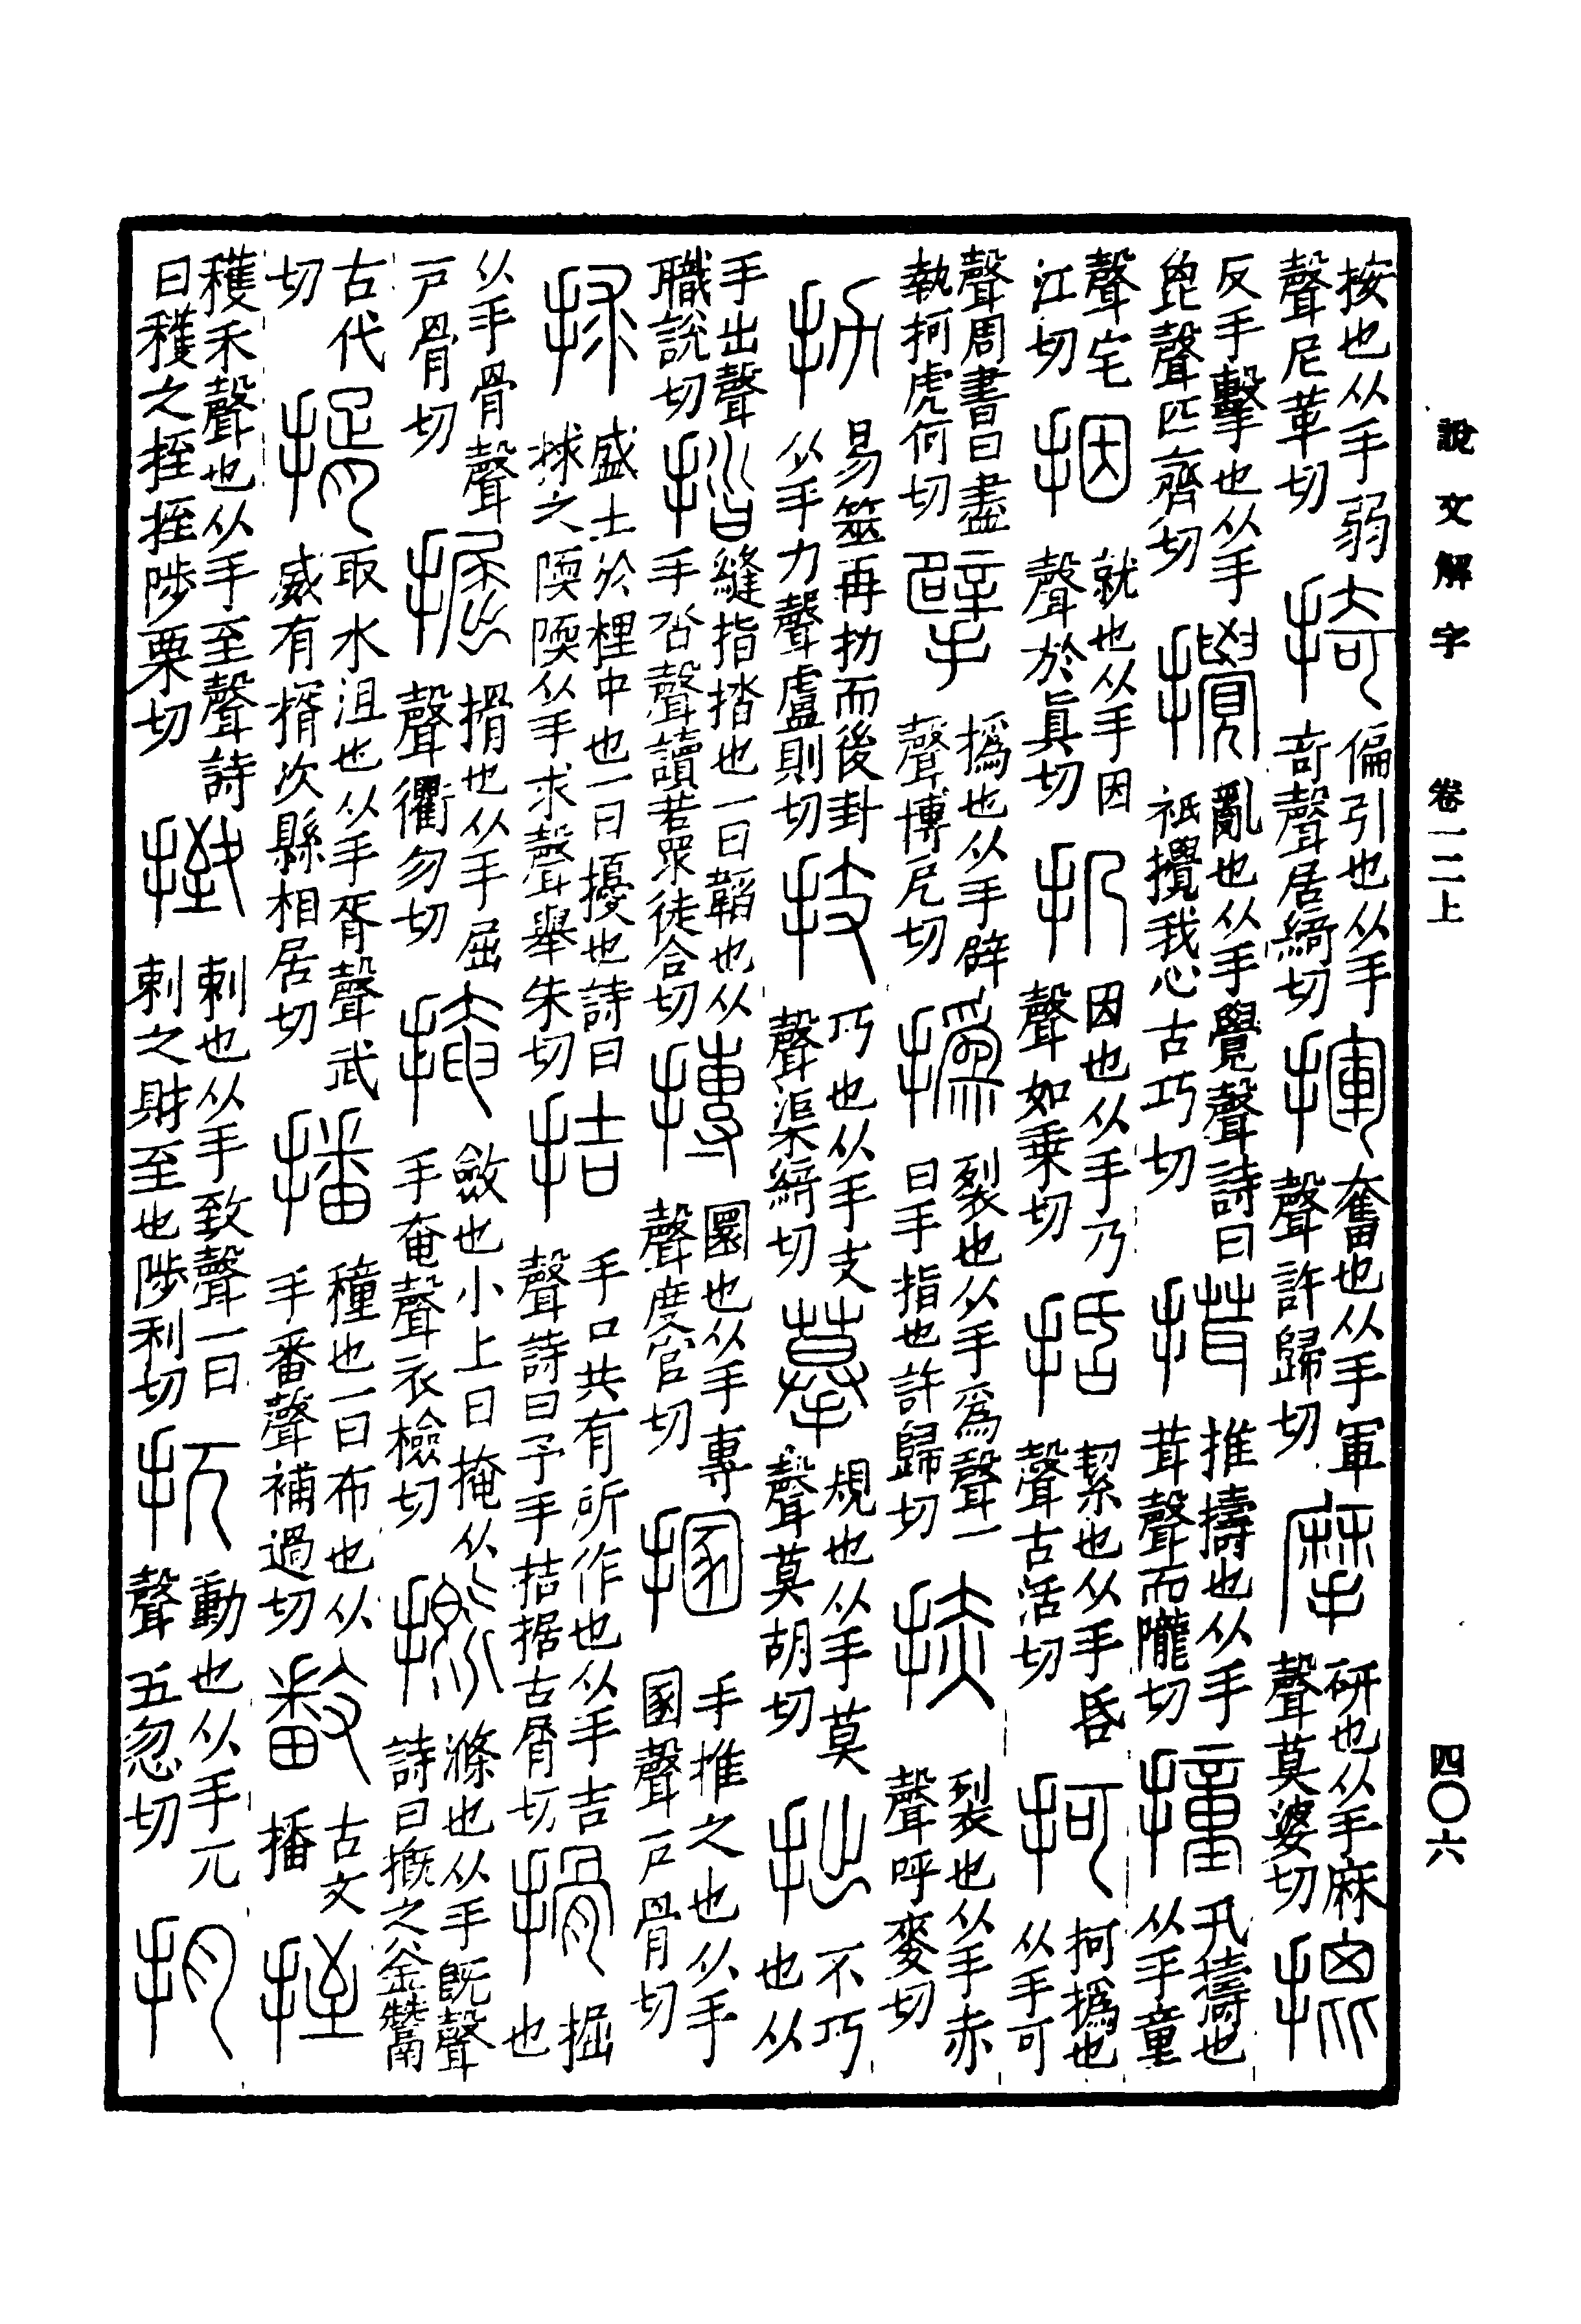 說文解字 卷一二上 四〇六
按也从手弱聲尼革切掎偏引也从手奇聲居綺切揮奮也从手軍聲許歸切摩研也从手麻聲莫婆切㨽
反手擊也从手毘聲匹齊切攪亂也从手覺聲詩曰祇攪我心古巧切搑推擣也从手茸聲而隴切撞卂擣也从手童
聲宅江切捆就也从手因聲於眞切扔因也从手乃聲如乗切括絜也从手𠯑聲古活切抲抲撝也从手可
聲周書曰盡執抲虎何切擘撝也从手辟聲博戹切撝裂也从手爲聲一曰手指也許歸切捇裂也从手赤聲呼麥切
扐易筮再扐而後卦从手力聲盧則切技巧也从手支聲渠綺切摹規也从手莫聲莫胡切拙不巧也从
手出聲職說切㧺縫指㧺也一曰韜也从手沓聲讀若眔徒合切摶圜也从手專聲度官切㨡手推之也从手圂聲戸骨切
捄盛土於梩中也一曰擾也詩曰捄之陾陾从手求聲舉朱切拮手口共有所作也从手吉聲詩曰予手拮据古屑切搰掘也
从手骨聲戸骨切掘搰也从手屈聲衢勿切掩斂也小上曰掩从手奄聲衣檢切摡滌也从手旣聲詩曰摡之釜鬵
古代切揟取水沮也从手胥聲武威有揟次縣相居切播穜也一曰布也从手番聲補過切𢿥古文播挃
穫禾聲也从手至聲詩曰穫之挃挃陟栗切㨖刺也从手致聲一曰刺之財至也陟利切扤動也从手兀聲五忽切抈